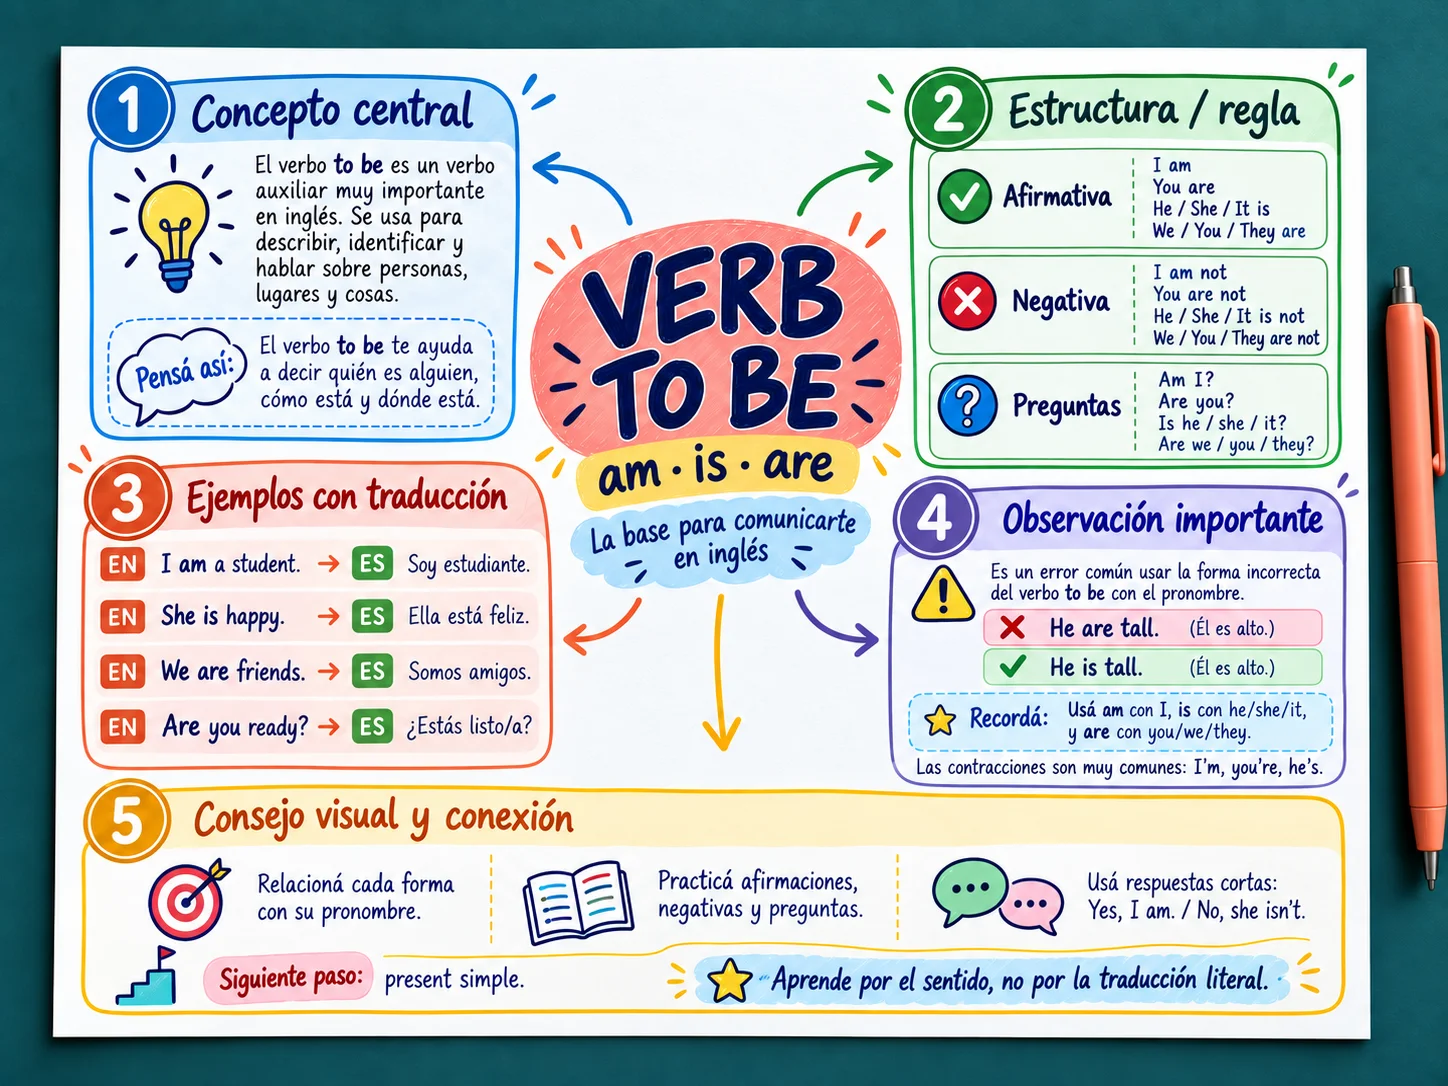 VERB
TO BE
am · is · are
La base para comunicarte
en inglés
1
Concepto central
El verbo to be es un verbo
auxiliar muy importante
en inglés. Se usa para
describir, identificar y
hablar sobre personas,
lugares y cosas.
Pensá así:
El verbo to be te ayuda
a decir quién es alguien,
cómo está y dónde está.
2
Estructura / regla
Afirmativa
I am
You are
He / She / It is
We / You / They are
Negativa
I am not
You are not
He / She / It is not
We / You / They are not
?
Preguntas
Am I?
Are you?
Is he / she / it?
Are we / you / they?
3
Ejemplos con traducción
EN I am a student. → ES Soy estudiante.
EN She is happy. → ES Ella está feliz.
EN We are friends. → ES Somos amigos.
EN Are you ready? → ES ¿Estás listo/a?
4
Observación importante
!
Es un error común usar la forma incorrecta
del verbo to be con el pronombre.
He are tall. (Él es alto.)
He is tall. (Él es alto.)
Recordá:
Usá am con I, is con he/she/it,
y are con you/we/they.
Las contracciones son muy comunes: I'm, you're, he's.
5
Consejo visual y conexión
Relacioná cada forma
con su pronombre.
Practicá afirmaciones,
negativas y preguntas.
Usá respuestas cortas:
Yes, I am. / No, she isn't.
Siguiente paso: present simple.
Aprende por el sentido, no por la traducción literal.